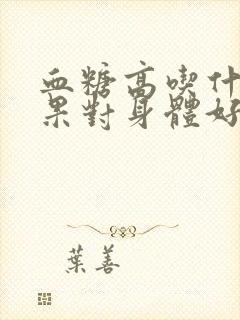 血糖高喫什
果對身體好
葉善